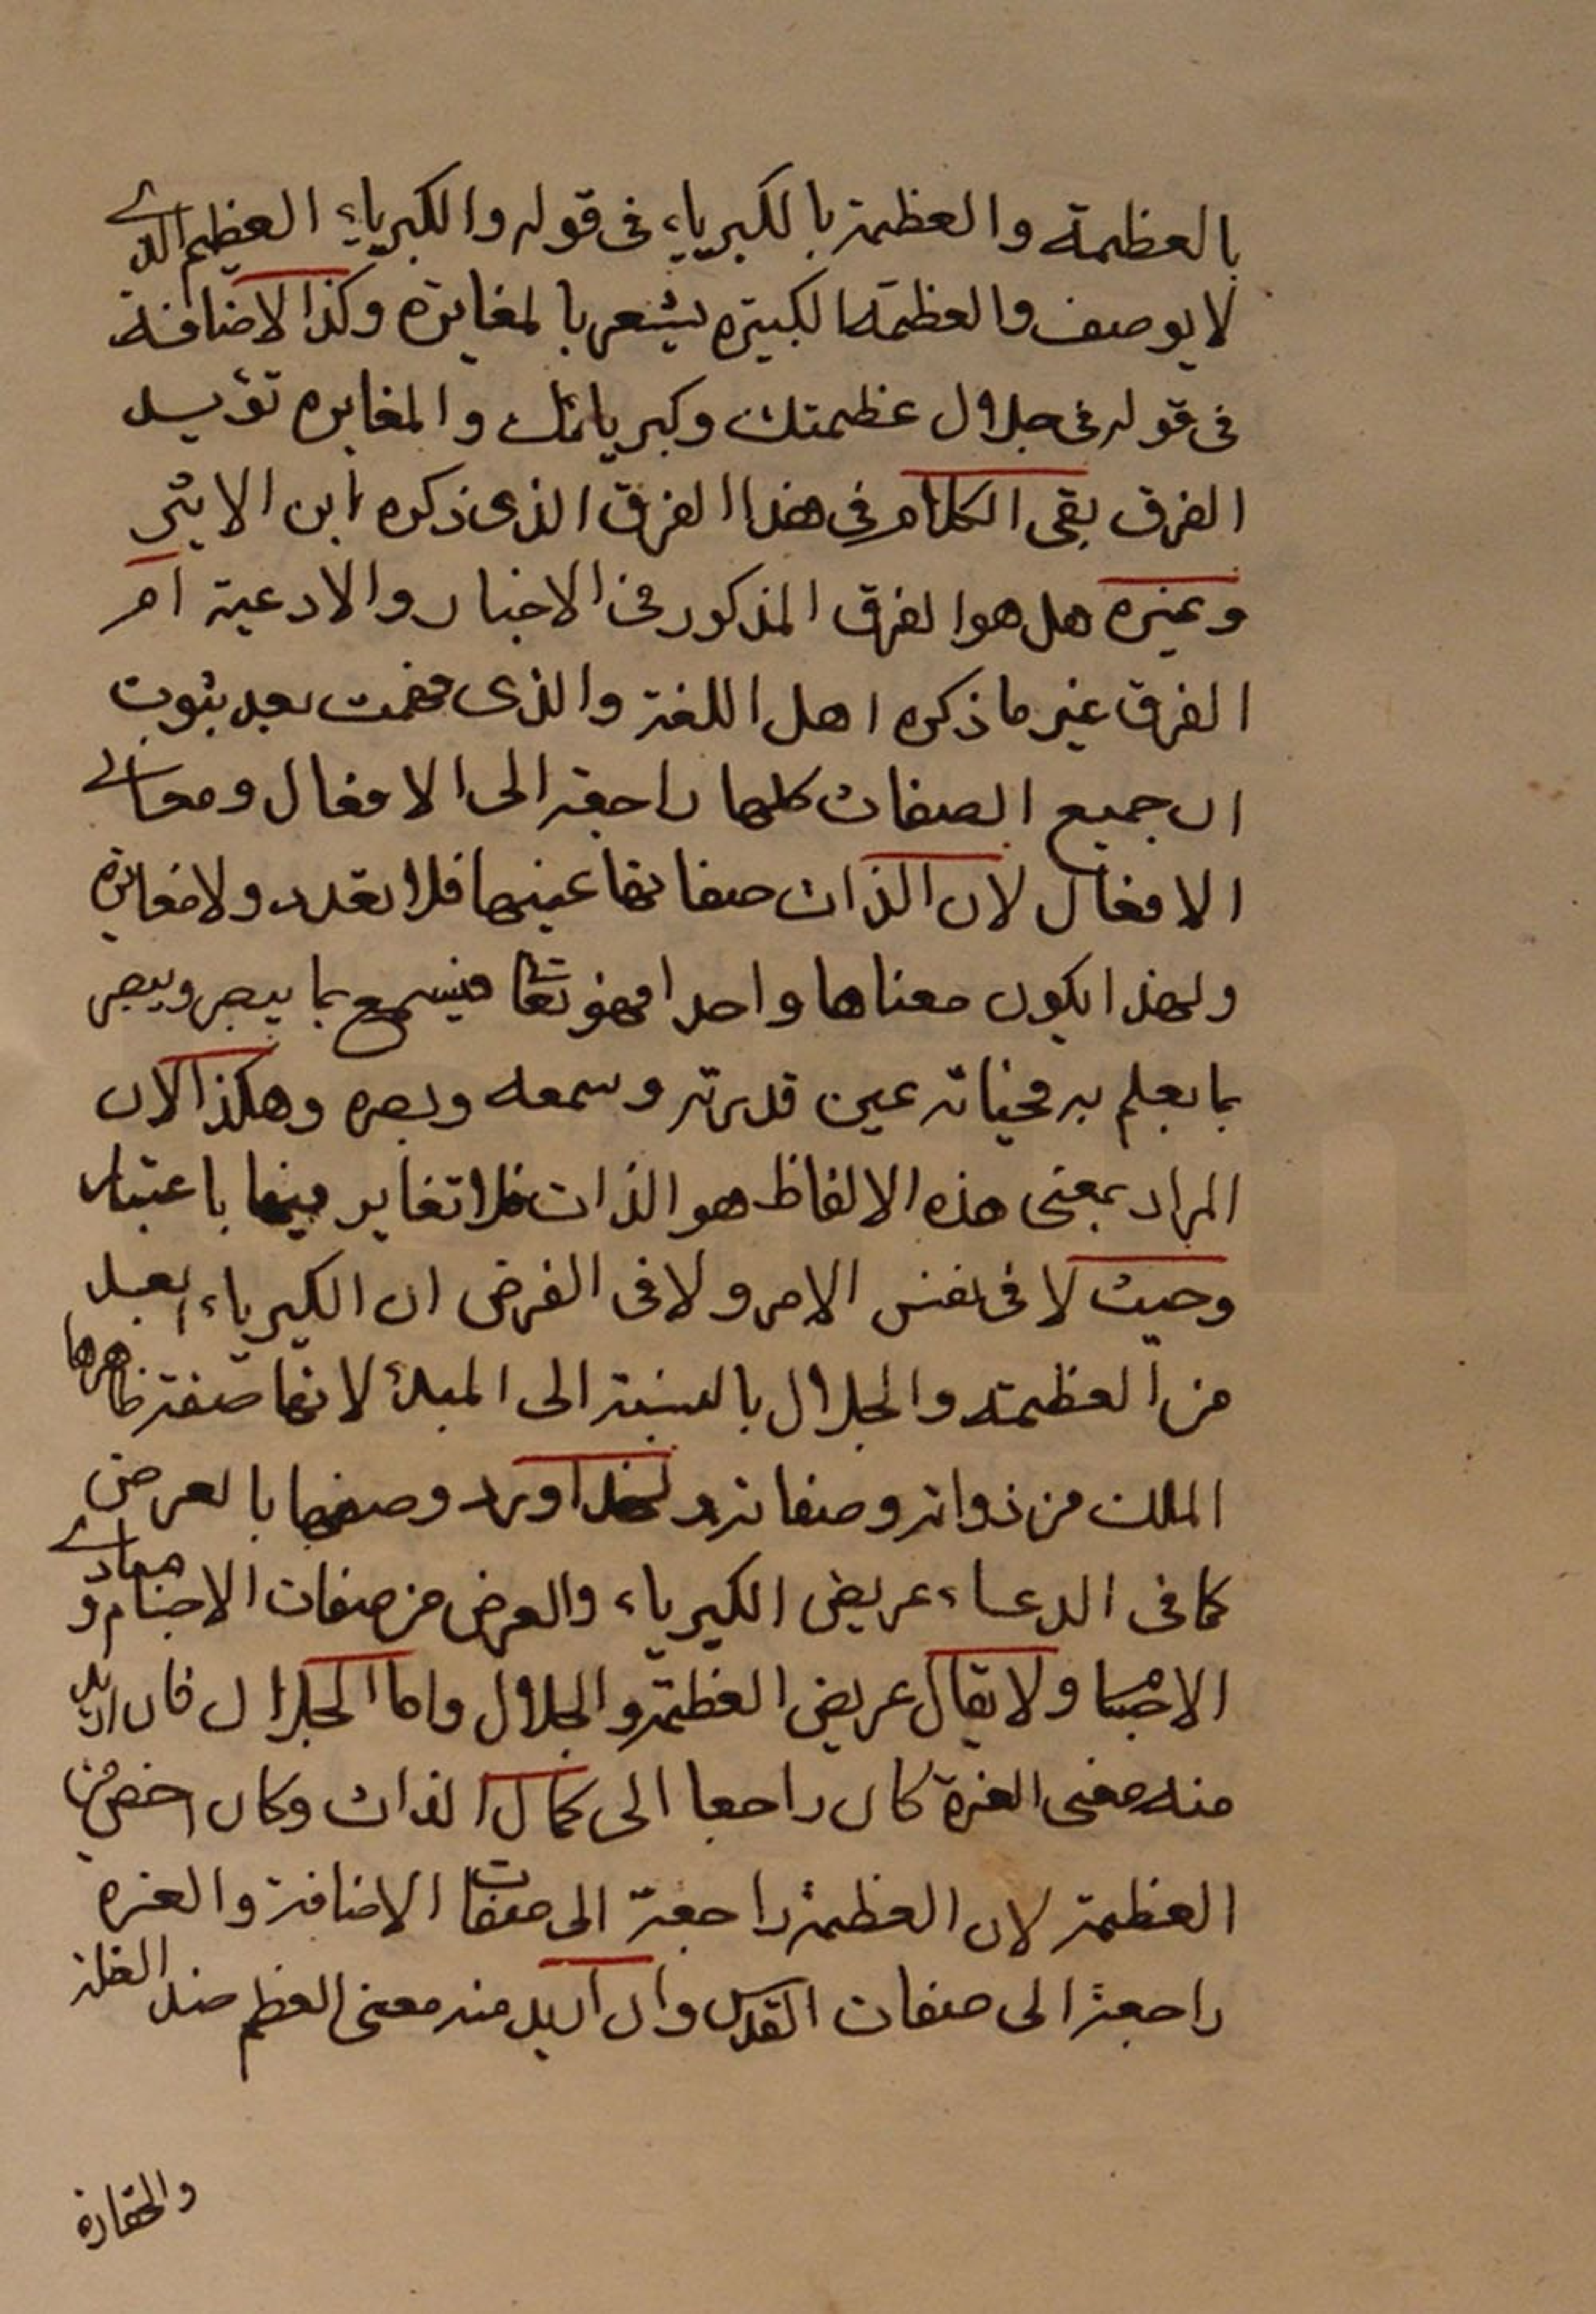 بالعظمة والعظمة بالكبرياء فى قوله والكبرياء العظيم الذى
لا يوصف والعظمة الكبيرة يشعر بالمغايرة وكذا الاضافة
فى قوله فى جلال عظمتك وكبريائك والمغايره تؤيد
الفرق بقى الكلام فى هذا الفرق الذى ذكره ابن الاثير
وغيره هل هو الفرق المذكور فى الاخبار والادعية ام
الفرق غير ما ذكره اهل اللغة والذى فهمت بعد ثبوت
ان جميع الصفات كلها راجعة الى الافعال ومعانى
الافعال لان الذات صفاتها عينها فلا تعدد ولا مغايرة
ولهذا يكون معناها واحدا فهو تعا فيسمع بما يبصر ويبصر
بما يعلم به فحياته عين قدرته وسمعه وبصره وهكذا لان
المراد بمعنى هذه الالفاظ هو الذات فلا تغاير فيها باعتبار
وحيث لا فى نفس الامر ولا فى الفرض ان الكبرياء ابعد
من العظمة والجلال بالنسبة الى المبدأ لانها صفة ظاهرها
الملك من ذواته وصفاته ولهذا ورد وصفها بالعرض
كما فى الدعاء عريض الكبرياء والعرض من صفات الاجسام و مبادى
الاجسام ولا يقال عريض العظمة والجلال واما الجلال فان اريد
منه معنى العزة كان راجعا الى كمال الذات وكان اخص من
العظمة لان العظمة راجعة الى صفات الاضافة والعزه
راجعة الى صفات القدس وان اريد منه معنى العظم ضد الغلة
والحقارة